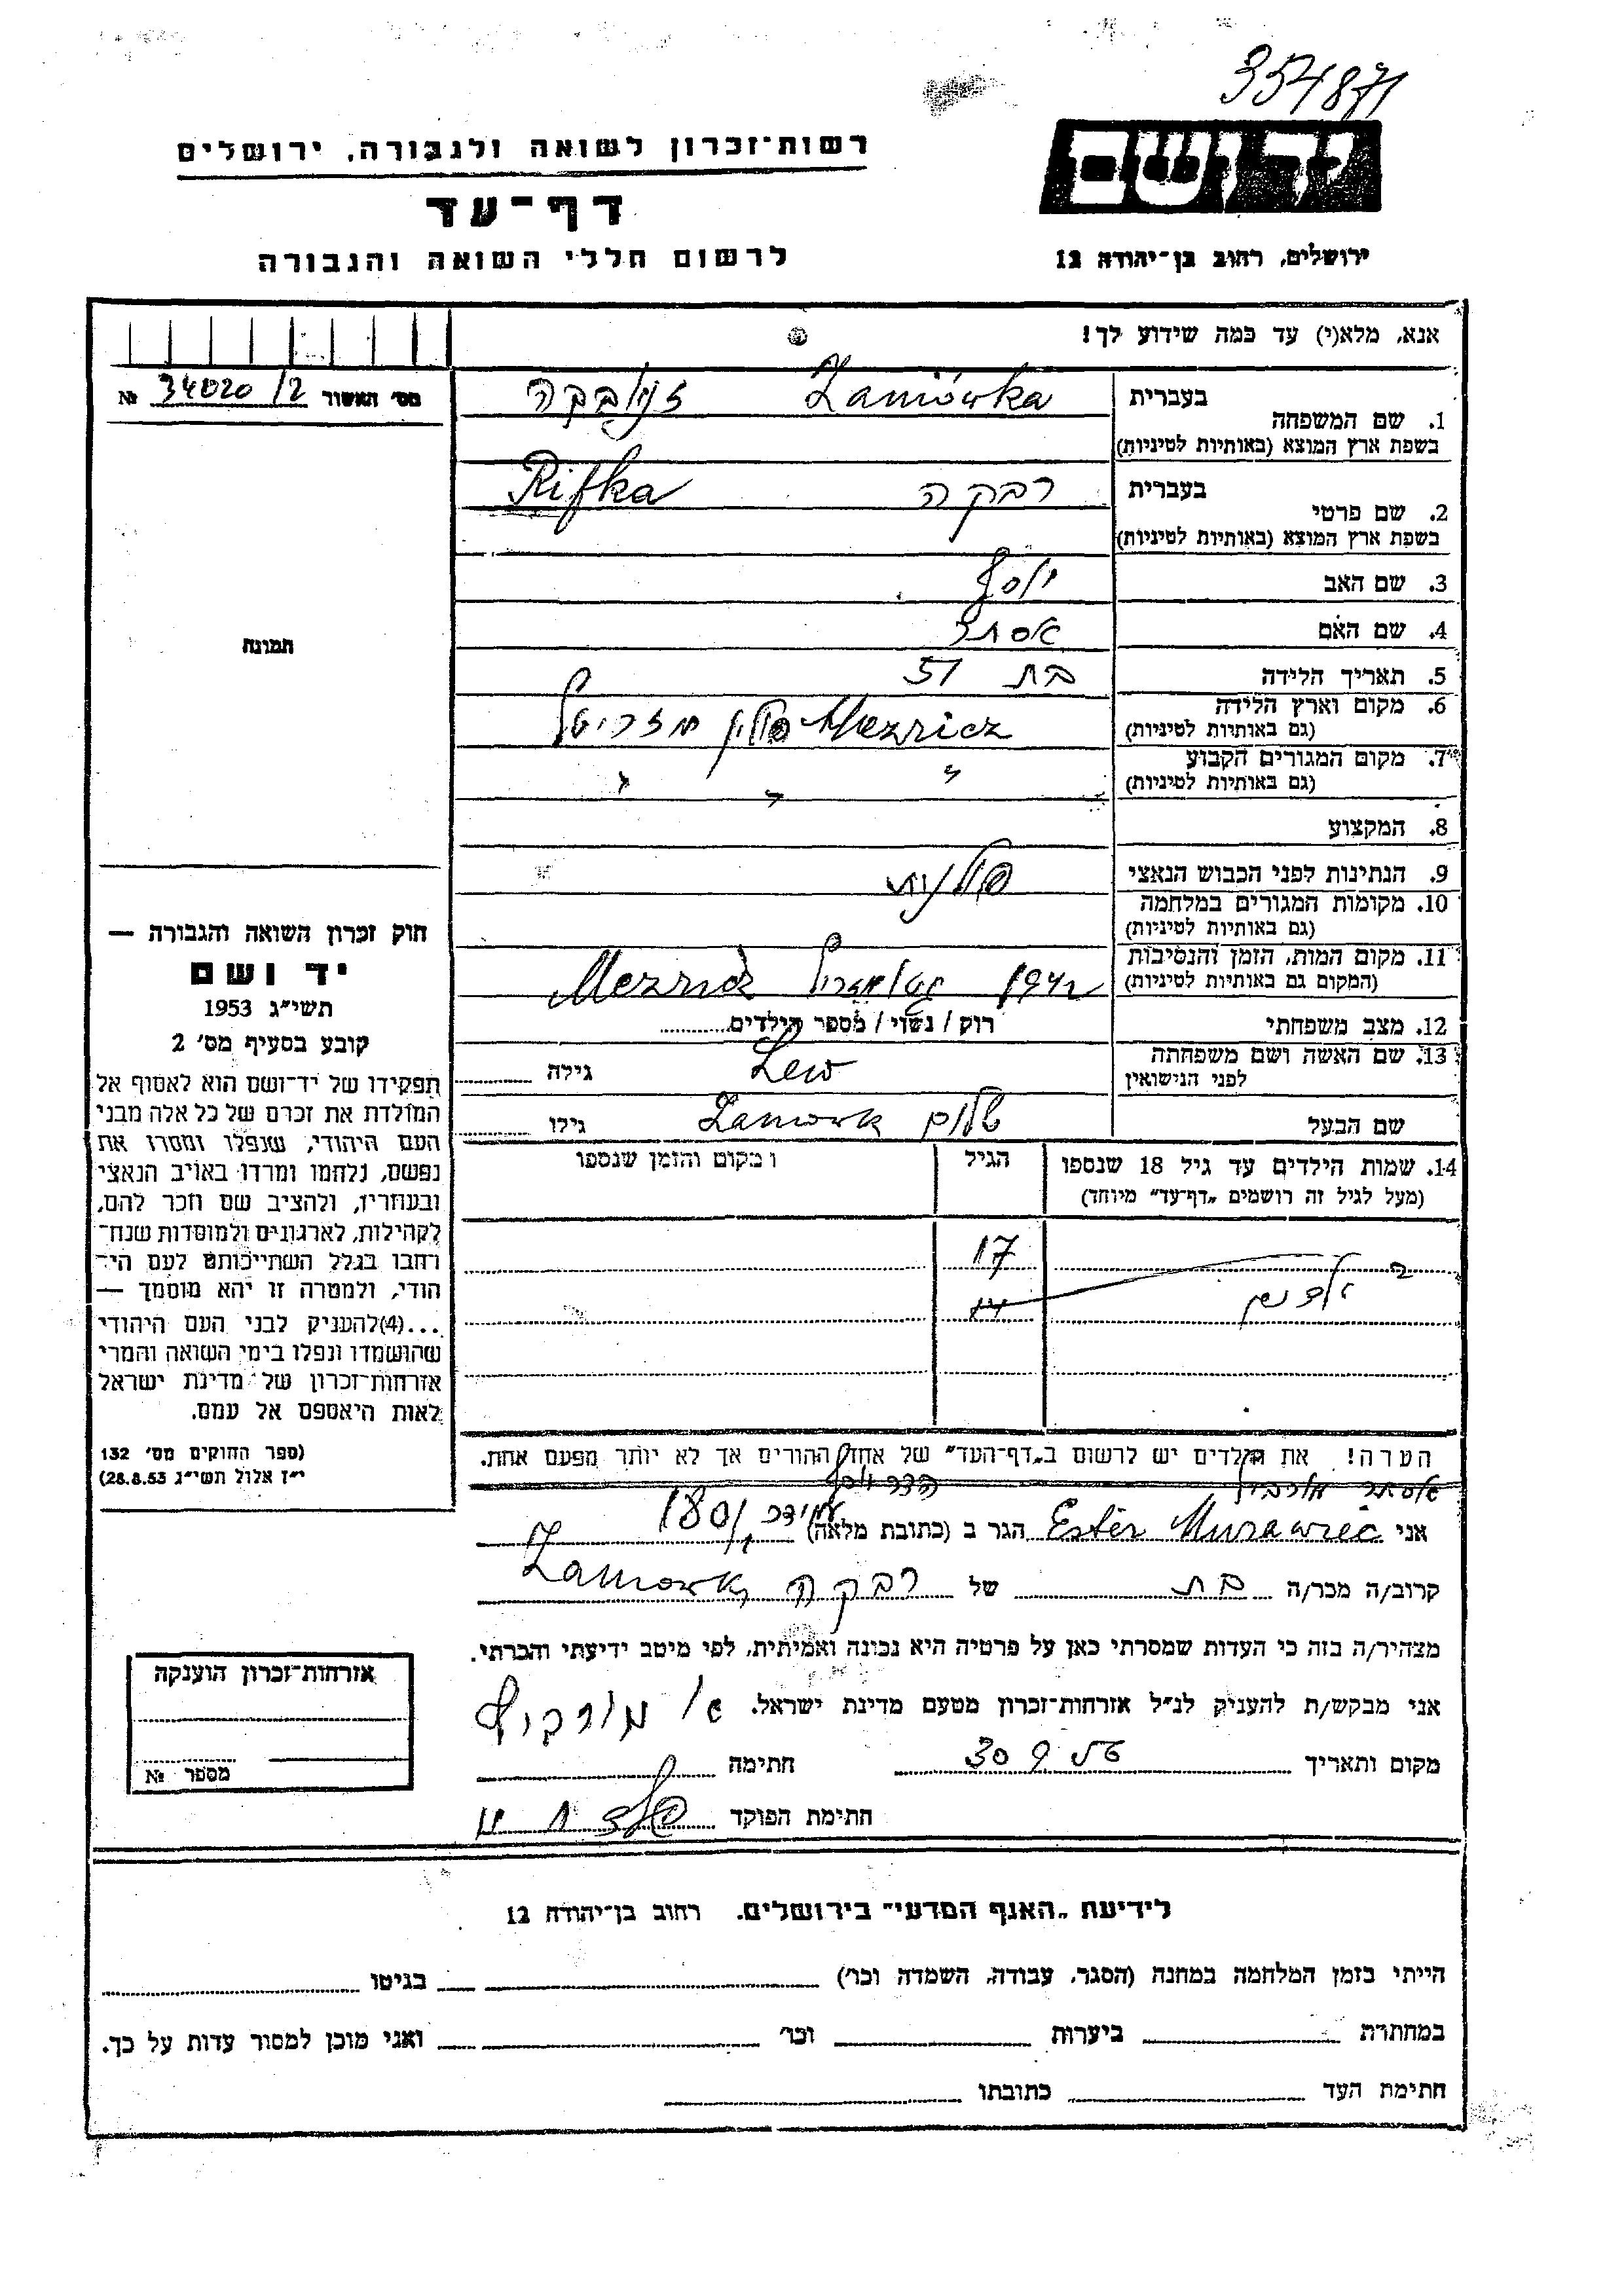 354871
יד ושם
רשות־זכרון לשואה ולגבורה, ירושלים
דף־עד
לרשום חללי השואה והגבורה
ירושלים, רחוב בן־יהודה 12
אנא, מלא(י) עד כמה שידוע לך!
מס' האשור 34020/2 №
תמונה
בעברית
1. שם המשפחה Zaniówka
בשפת ארץ המוצא (באותיות לטיניות)
בעברית רבקה Rifka
2. שם פרטי
בשפת ארץ המוצא (באותיות לטיניות)
3. שם האב יוסף
4. שם האם אסתר
5. תאריך הלידה בת 51
6. מקום וארץ הלידה Mezricz פולין
(גם באותיות לטיניות)
7. מקום המגורים הקבוע " " "
(גם באותיות לטיניות)
8. המקצוע
9. הנתינות לפני הכבוש הנאצי פולנית
10. מקומות המגורים במלחמה
(גם באותיות לטיניות)
11. מקום המות, הזמן והנסיבות
(המקום גם באותיות לטיניות)
12. מצב משפחתי רוק / נשוי / מספר הילדים
13. שם האשה ושם משפחתה Lew גילה
לפני הנישואין
שם הבעל שלום גילו
14. שמות הילדים עד גיל 18 שנספו הגיל ומקום והזמן שנספו
(מעל לגיל זה רושמים „דף־עד" מיוחד)
17
14
הערה! את הילדים יש לרשום ב„דף־העד" של אחד ההורים אך לא יותר מפעם אחת.
אני Ester Murawiec הגר ב (כתובת מלאה) 180/
קרוב/ה מכר/ה בת של רבקה
מצהיר/ה בזה כי העדות שמסרתי כאן על פרטיה היא נכונה ואמיתית, לפי מיטב ידיעתי והכרתי.
אני מבקש/ת להעניק לנ"ל אזרחות־זכרון מטעם מדינת ישראל.
מקום ותאריך 30 9 חתימה
חתימת הפוקד
חוק זכרון השואה והגבורה —
יד ושם
תשי״ג 1953
קובע בסעיף מס' 2
תפקידו של יד־ושם הוא לאסוף אל
המולדת את זכרם של כל אלה מבני
העם היהודי, שנפלו ומסרו את
נפשם, נלחמו ומרדו באויב הנאצי
ובעוזריו, ולהציב שם וזכר להם,
לקהילות, לארגונים ולמוסדות שנח־
רבו בגלל השתייכותם לעם הי־
הודי, ולמטרה זו יהא מוסמך —
...(4) להעניק לבני העם היהודי
שהושמדו ונפלו בימי השואה והמרי
אזרחות־זכרון של מדינת ישראל
לאות היאספם אל עמם.
(ספר החוקים מס' 132
י״ז אלול תשי״ג 28.8.53)
אזרחות־זכרון הוענקה
מספר №
לידיעת „האגף המדעי" בירושלים, רחוב בן־יהודה 12
הייתי בזמן המלחמה במחנה (הסגר, עבודה, השמדה וכו') בגיטו
במחתרת ביערות וכו' ואני מוכן למסור עדות על כך.
חתימת העד כתובתו